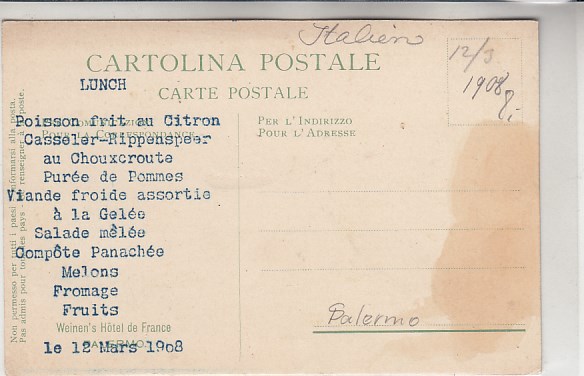 Italien
12/3
1908
CARTOLINA POSTALE
LUNCH
CARTE POSTALE
Poisson frit au Citron
Casseler-Rippenspeer
POUR LA CORRESPONDANCE
au Chouxcroute
Purée de Pommes
Viande froide assortie
à la Gelée
Salade mêlée
Compôte Panachée
Melons
Fromage
Fruits
Weinen's Hôtel de France
PALERMO.
le 12 Mars 1908
PER L'INDIRIZZO
POUR L'ADRESSE
Palermo
Non permesso per tutti i paesi - informarsi alla posta.
Pas admis pour tous les pays - se renseigner à la poste.